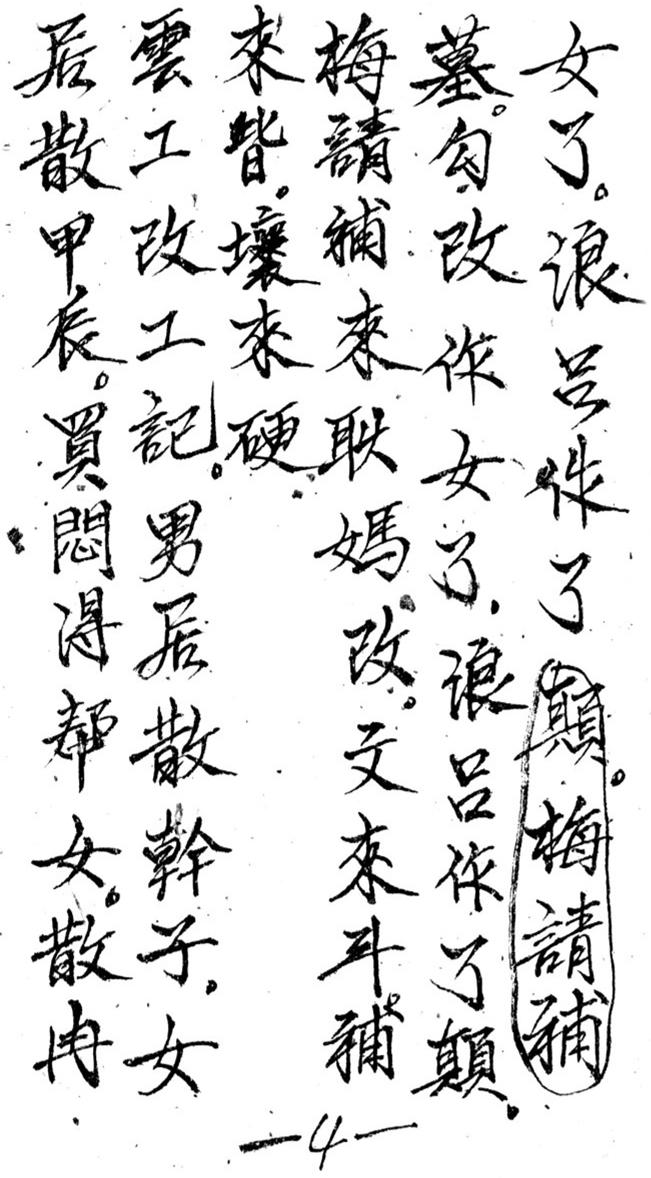 女了。浪呂作了顛。梅請補
墓。勾改作女了，浪呂作了顛。
梅請補來耿媽改。文來斗。補
來皆。壞來硬。
雲工改工記。男居散幹子。女
居散甲辰。買悶得帮女。散冉
—4—